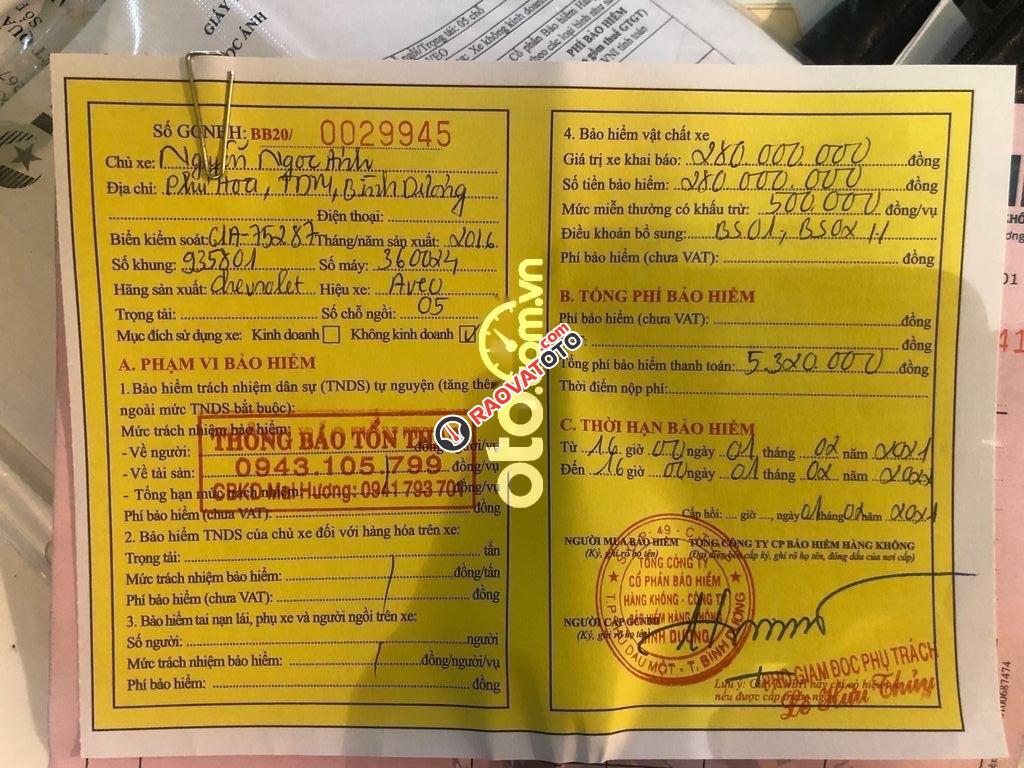 GIẤY
NGỌC ÁNH
Số GCNBH: BB20/ 0029945
Chủ xe: Nguyễn Ngọc Anh
Địa chỉ: Phú Hòa, TDM, Bình Dương
Điện thoại:
Biển kiểm soát: 61A-75287 Tháng/năm sản xuất: 2016
Số khung: 935801 Số máy: 360024
Hãng sản xuất: Chevrolet Hiệu xe: Aveo
Trọng tải: Số chỗ ngồi: 05
Mục đích sử dụng xe: Kinh doanh Không kinh doanh
A. PHẠM VI BẢO HIỂM
1. Bảo hiểm trách nhiệm dân sự (TNDS) tự nguyện (tăng thêm
ngoài mức TNDS bắt buộc):
Mức trách nhiệm bảo hiểm:
- Về người: đồng/người/vụ
- Về tài sản: đồng/vụ
- Tổng hạn mức trách nhiệm: đồng/vụ
THÔNG BÁO TỔN
0943.105.799
CBKD Mai Hương: 0941 793 701
Phí bảo hiểm (chưa VAT): đồng
2. Bảo hiểm TNDS của chủ xe đối với hàng hóa trên xe:
Trọng tải: tấn
Mức trách nhiệm bảo hiểm: đồng/tấn
Phí bảo hiểm (chưa VAT): đồng
3. Bảo hiểm tai nạn lái, phụ xe và người ngồi trên xe:
Số người: người
Mức trách nhiệm bảo hiểm: đồng/người/vụ
Phí bảo hiểm: đồng
4. Bảo hiểm vật chất xe
Giá trị xe khai báo: 280.000.000 đồng
Số tiền bảo hiểm: 280.000.000 đồng
Mức miễn thường có khấu trừ: 500.000 đồng/vụ
Điều khoản bổ sung: BS01, BS02 H
Phí bảo hiểm (chưa VAT): đồng
B. TỔNG PHÍ BẢO HIỂM
Phí bảo hiểm (chưa VAT): đồng
đồng
Tổng phí bảo hiểm thanh toán: 5.320.000 đồng
Thời điểm nộp phí:
C. THỜI HẠN BẢO HIỂM
Từ 16 giờ 00 ngày 01 tháng 02 năm 2021
Đến 16 giờ 00 ngày 01 tháng 02 năm 2022
Cấp hồi: giờ, ngày 01 tháng 02 năm 2021
NGƯỜI MUA BẢO HIỂM TỔNG CÔNG TY CP BẢO HIỂM HÀNG KHÔNG
(Ký, ghi rõ họ tên) (Đại diện bên cấp ký, ghi rõ họ tên, đóng dấu của nơi cấp)
TỔNG CÔNG TY
CỔ PHẦN BẢO HIỂM
HÀNG KHÔNG - CÔNG TY
BẢO HIỂM HÀNG KHÔNG
BÌNH DƯƠNG
T.P THỦ DẦU MỘT - T. BÌNH DƯƠNG
NGƯỜI CẤP GCNBH
(Ký, ghi rõ họ tên)
PHÓ GIÁM ĐỐC PHỤ TRÁCH
Lê Hữu Thủy
oto.com.vn
RAOVATOTO
.COM